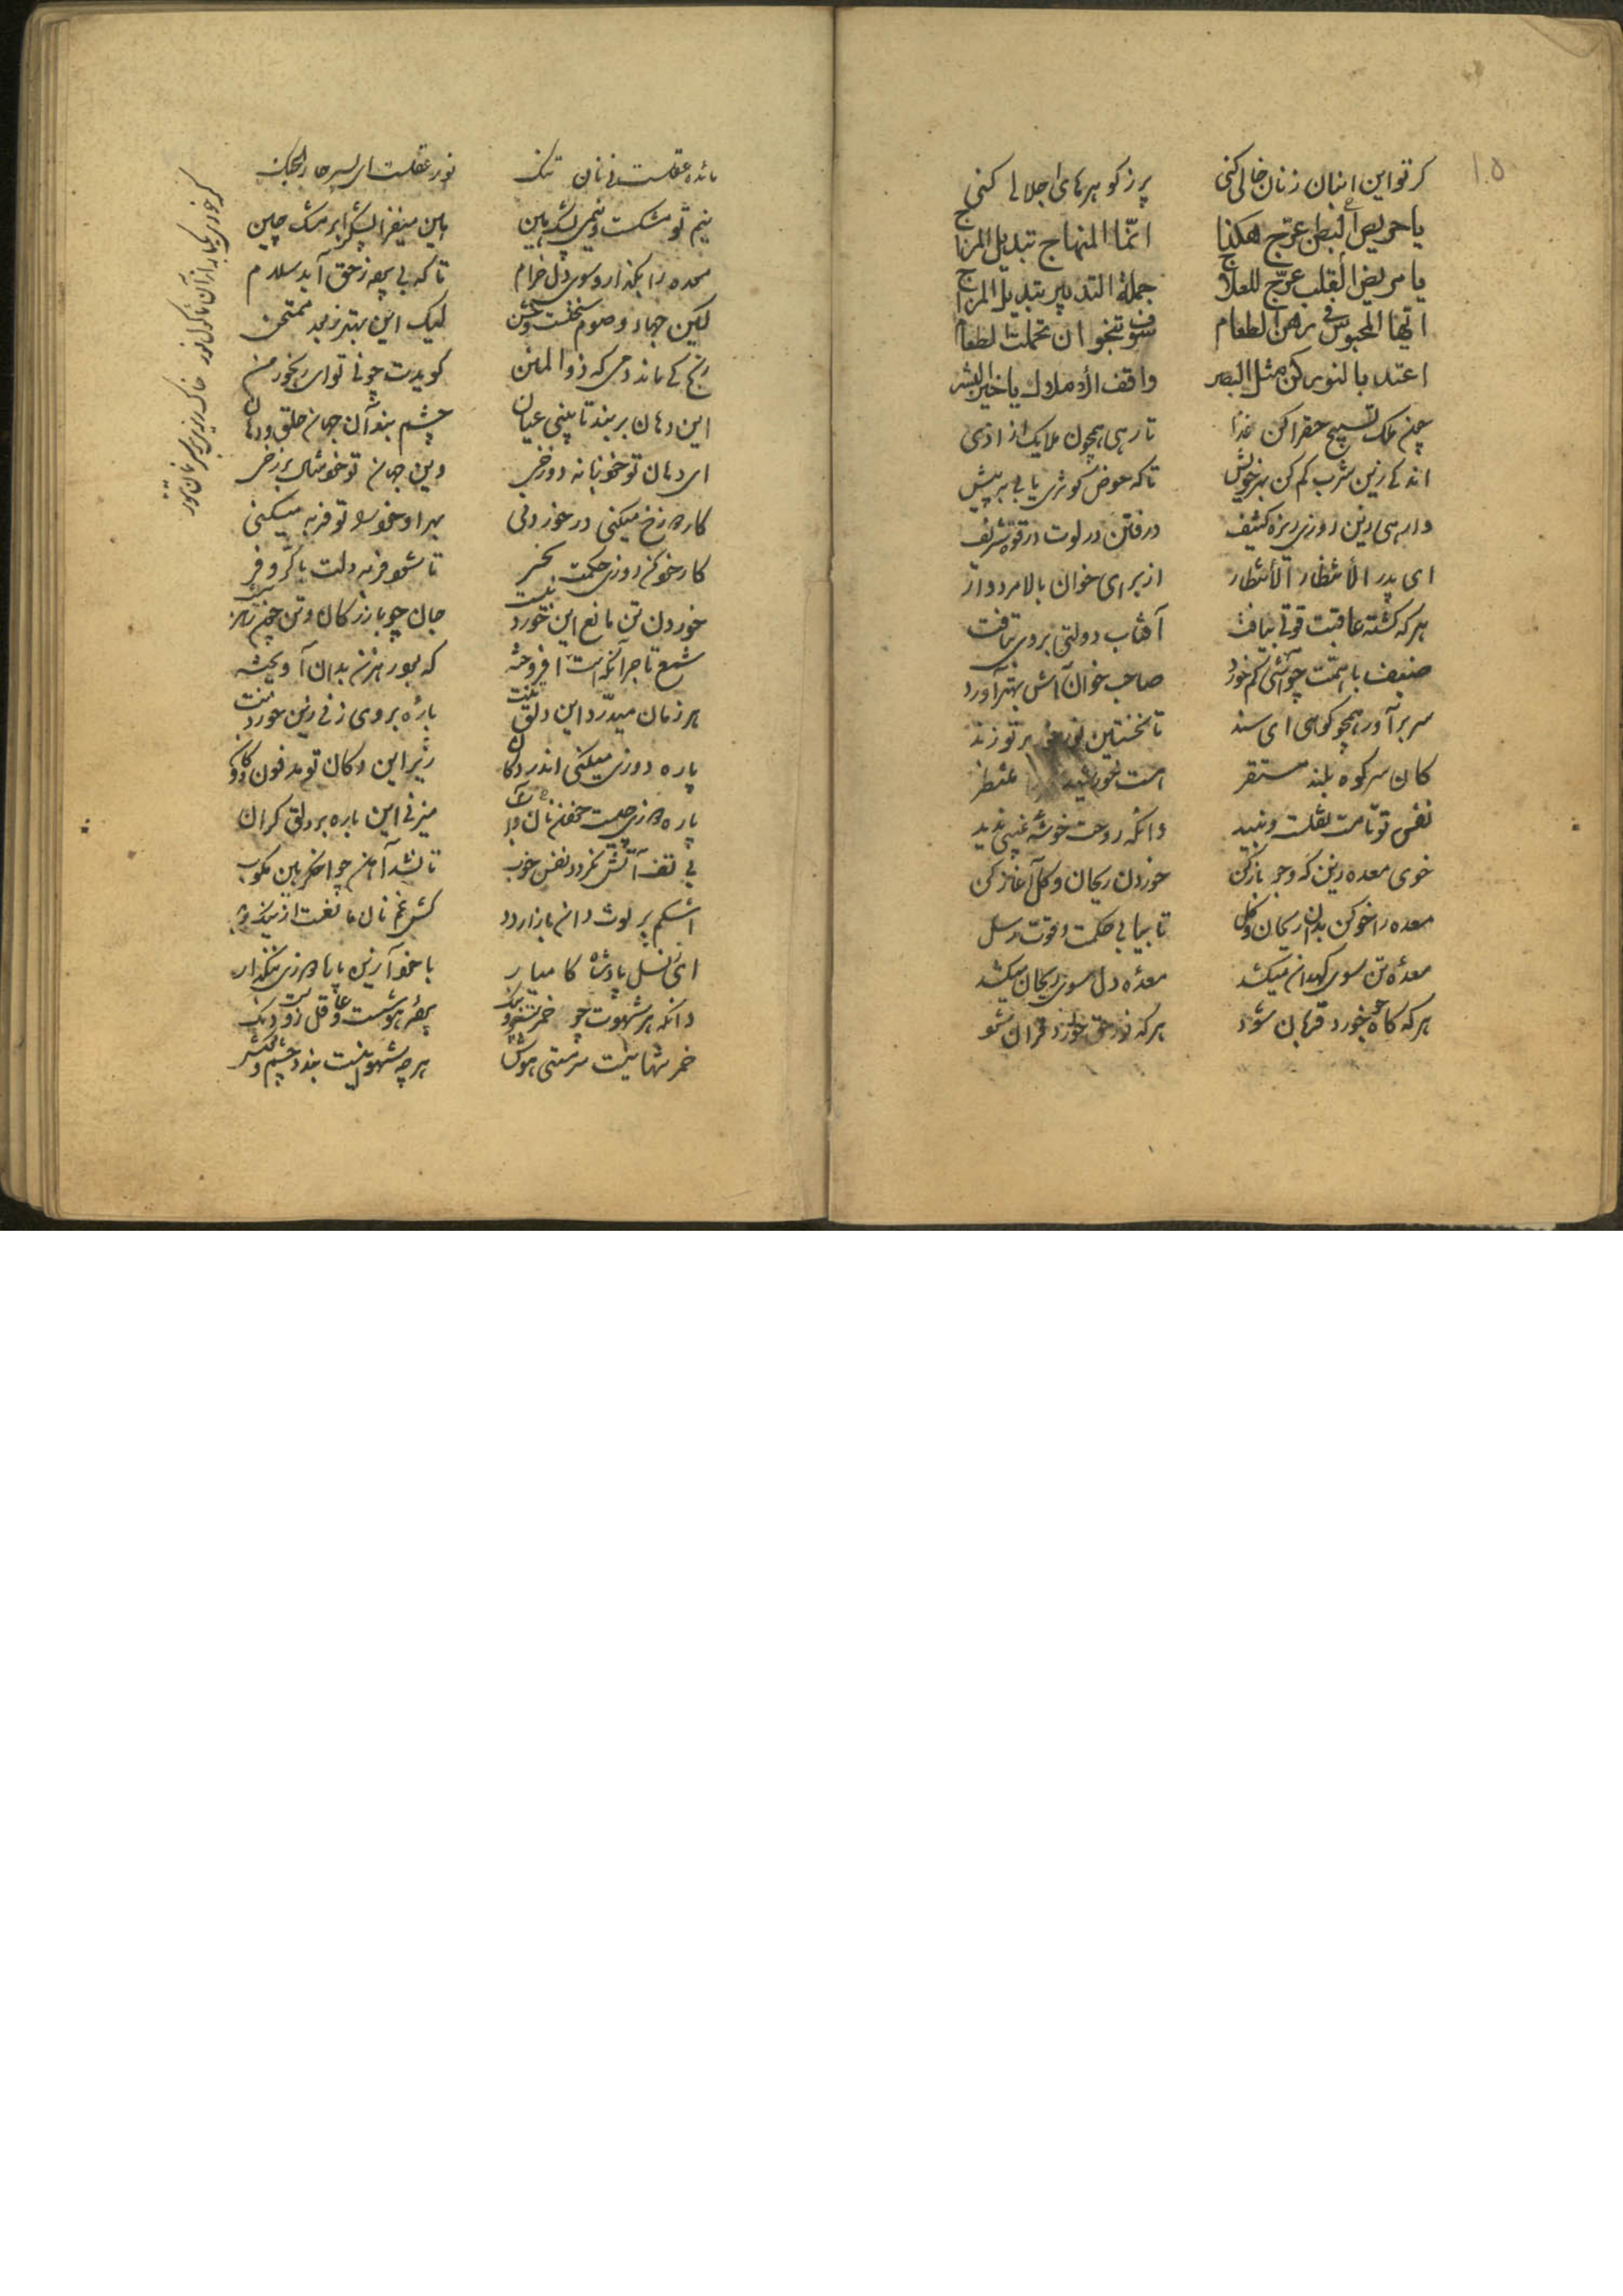 ۱۰۵
کر تو این انبان زنان خالی کنی پر ز کوهرهای اجلالی کنی
یا حریص البطن عرّج هکذا انّما المنهاج تبدیل المزاج
یا مریض القلب عرّج للعلاج جملة التدبیر تبدیل المزاج
ایّها المحبوس فی رهن الطعام سوف تنجو ان تحملت الطعام
اغتد بالنور کن مثل البصر وافق الأملاک یا خیر البشر
چون ملک تسبیح حق را کن غذا تا رهی همچون ملایک از اذی
اندکی زین شرب کم کن بهر خویش تا که حوض کوثری یابی به پیش
وا رهی زین روزی ریزه کثیف در فتی در لوت در قوت شریف
ای پدر الأنتظار الأنتظار از برای خوان بالا مردوار
هر که کشنه عاقبت قوتی بیافت آفتاب دولتی بروی بتافت
ضیف با همّت چو آشی کم خورد صاحب خوان آش بهتر آورد
سر برآور همچو کوهی ای سند تا نخستین نور خور بر تو زند
کان سر کوه بلند مستقر است خورشید را منتظر
نفس تو تا مست نقلست و نبید دانکه روحت خوشه غیبی ندید
خوی معده زین که و جو باز کن خوردن ریحان و کل آغاز کن
معده را خو کن بدان ریحان و کل تا بیابی حکمت و قوت رسل
معدهٔ تن سوی کهدان میکشد معدهٔ دل سوی ریحان میکشد
هر که کاه و جو خورد قربان شود هر که نور حق خورد قرآن شود
مائده عقلست نی نان نور عقلست ای پسر جان را
نیم تو مشکست و نیمی پشک هین هین میفزا پشک افزا مشک چین
معده را بکذار و سوی دل خرام تا که بی پرده ز حق آید سلام
لیکن جهاد و صوم سختست و خشن لیک این بهتر ز بعد ممتحن
رنج کی ماند دمی که ذوالمنن کویدت چونی تو ای رنجور من
این دهان بربند تا بینی عیان چشم بند آن جهان حلق و دهان
ای دهان تو خود دهانه دوزخی وین جهان تو خود مثال برزخی
کار دوزخ میکنی در خوردنی بهر او خود را تو فربه میکنی
کار خود کن روزی حکمت بخور تا شود فربه دلت با کرّ و فر
خوردن تن مانع این خوردنست جان چو بازرکان و تن چون رهزنست
شمع تاجر آنکه است افروخته که بود رهزن بدان آویخته
هر زمان میدرّد این دلق تنت پاره بروی میزنی زین خوردنت
پاره دوزی میکنی اندر دکان زیر این دکان تو مدفون دو کان
پاره دوزی چیست خوردن نان و آب میزنی این پاره بر دلق کران
بی تف آتش نکردد نفس خوب تا نشد آهن چو اخکر هین مکوب
اشکم پر لوث دان بازار دیو کش غم نان مانعست از
ای ز نسل پادشاه کامیار با خود آ زین پاره دوزی ننک دار
دانکه هر شهوت چو خمرست و چو بنک پرده هوشست و عاقل زوست دنک
خمر تنها نیست سرمستی هوش هر چه شهوانیست بندد چشم و کوش
کر خوری یکبار از آن ماکول نور خاک ریزی بر سر نان تنور